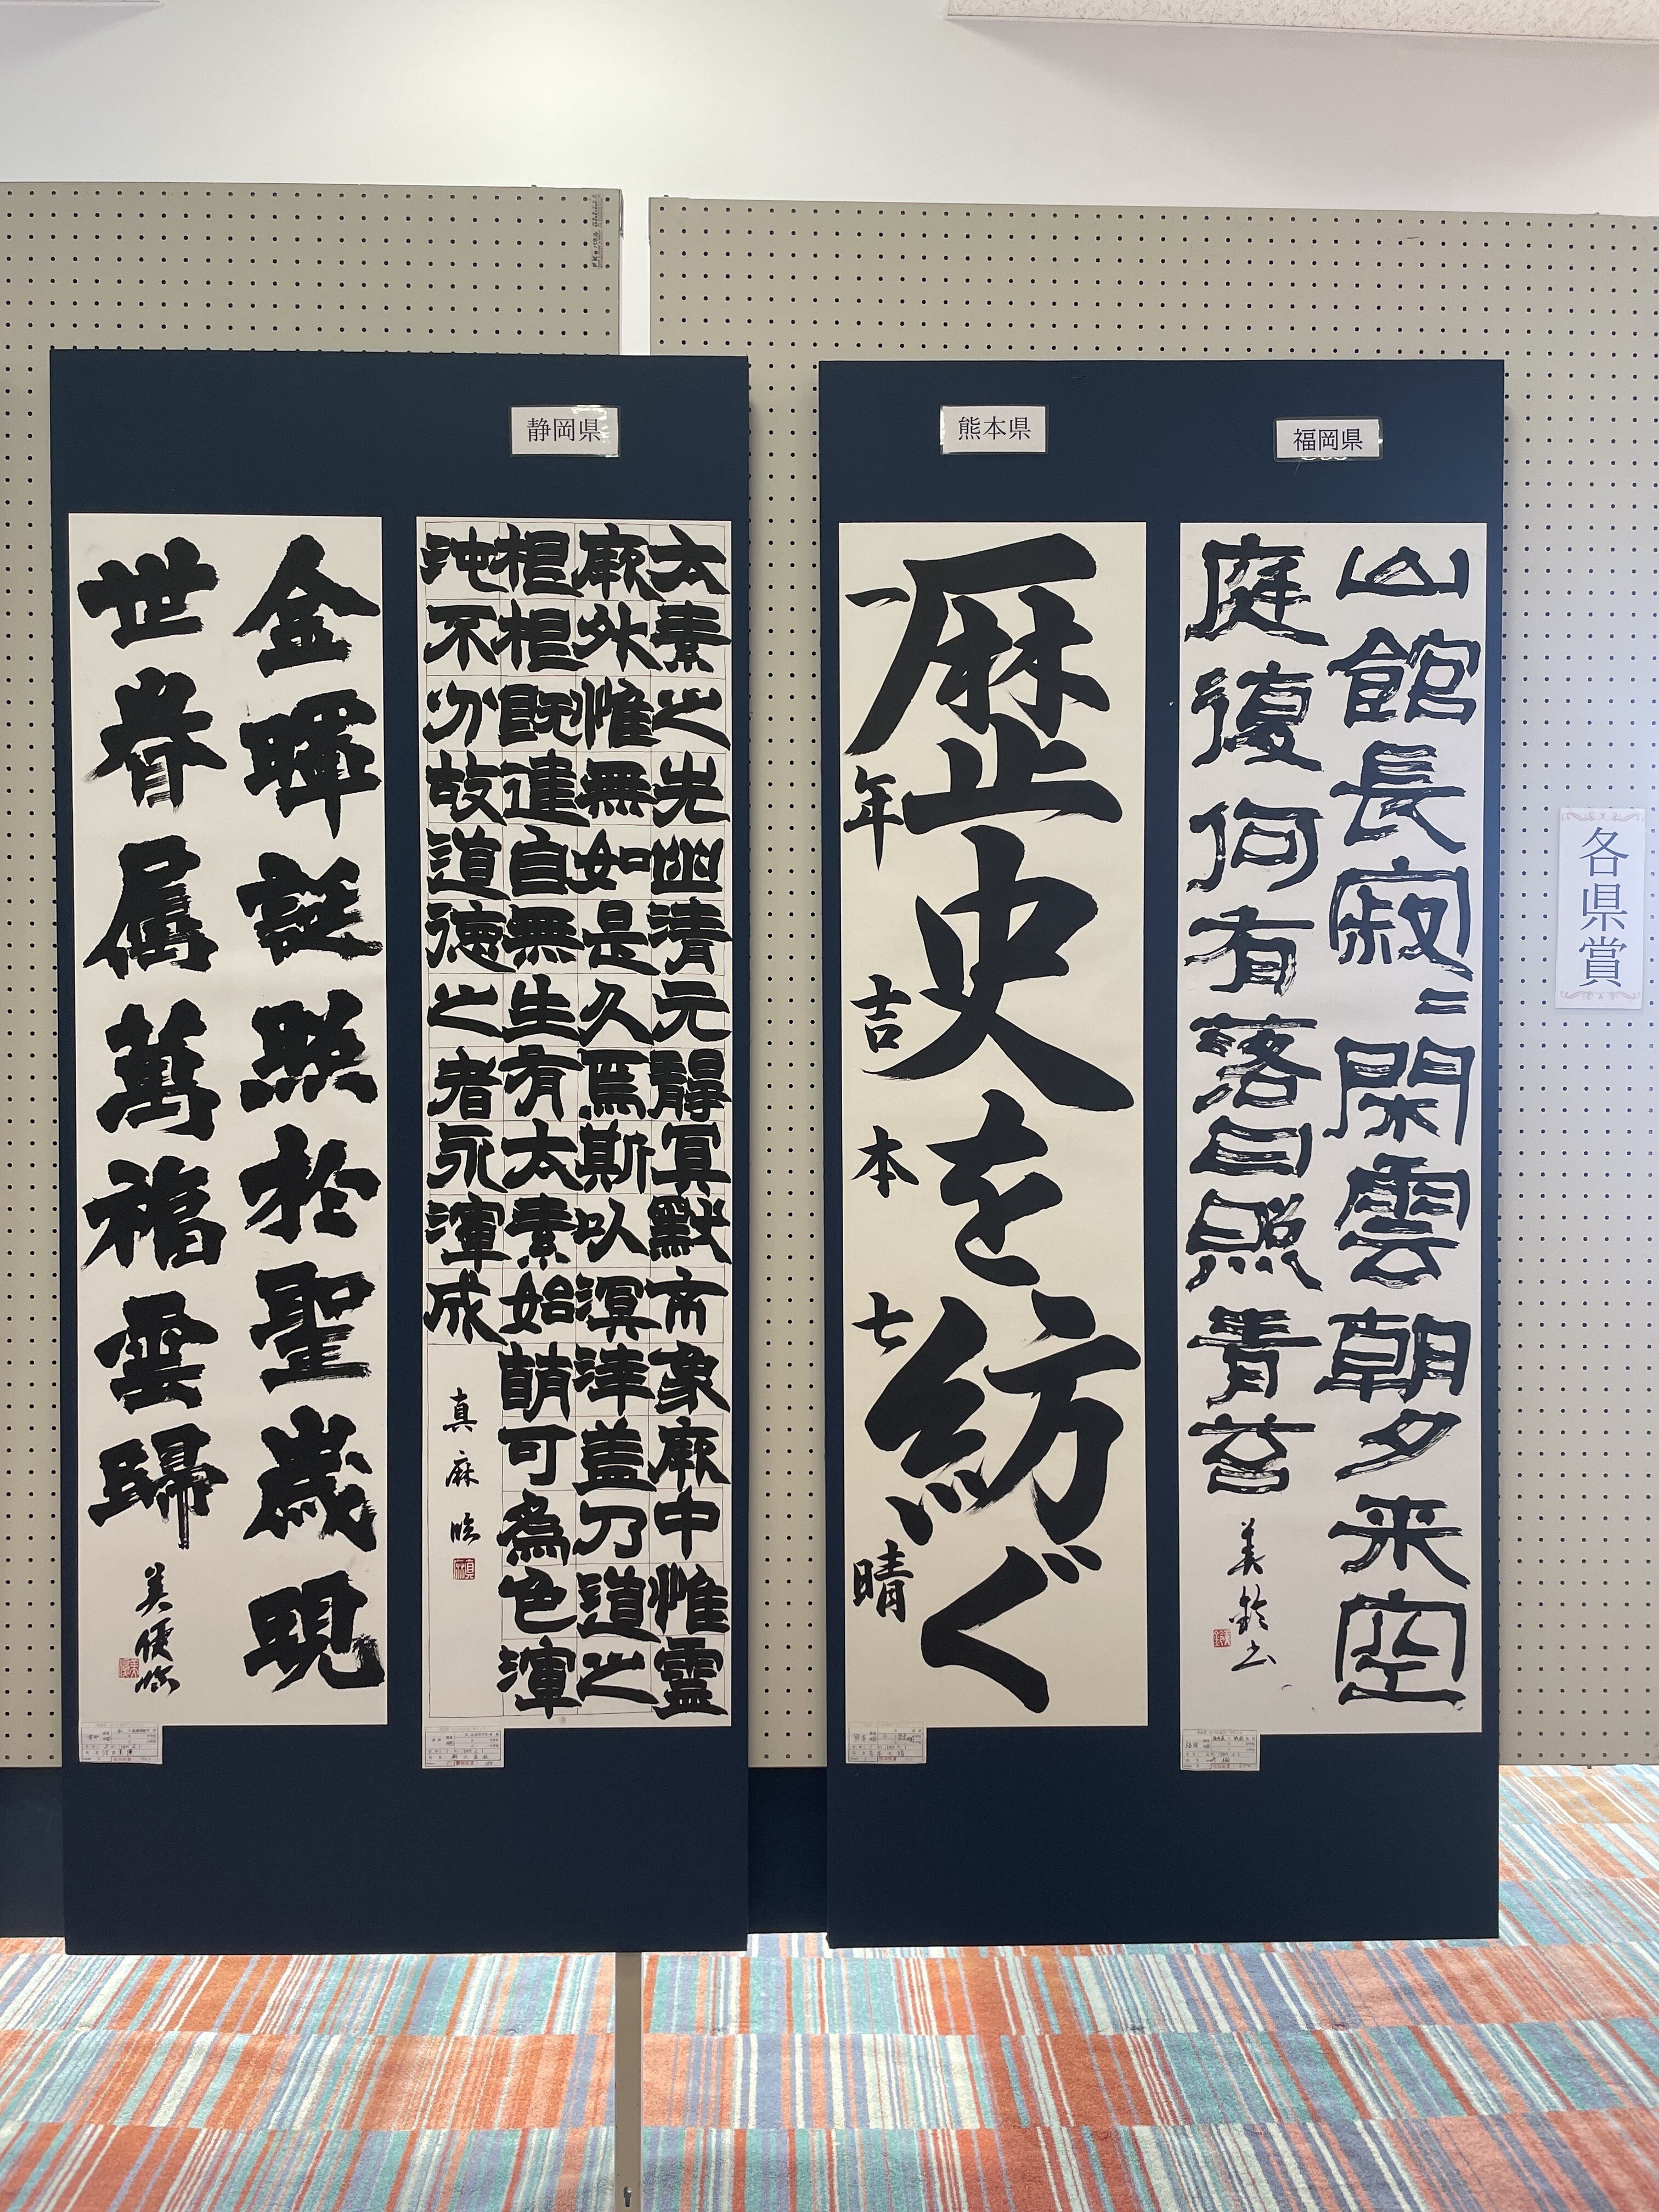 各県賞
福岡県
山館長寂〻閑雲朝夕来空
庭復何有落日照青苔
美鈴書
熊本県
歴史を紡ぐ
一年 吉本七晴
静岡県
太素之先幽清元靜冥黙象厥中惟霊
厥外惟無如是久焉斯以溟涬蓋乃道之
根根既建自無生有太素始萌可為色渾
沌不分故道徳之者永渾成
真麻臨
金暉誕照於聖歳現
世眷属萬福雲歸
美優臨